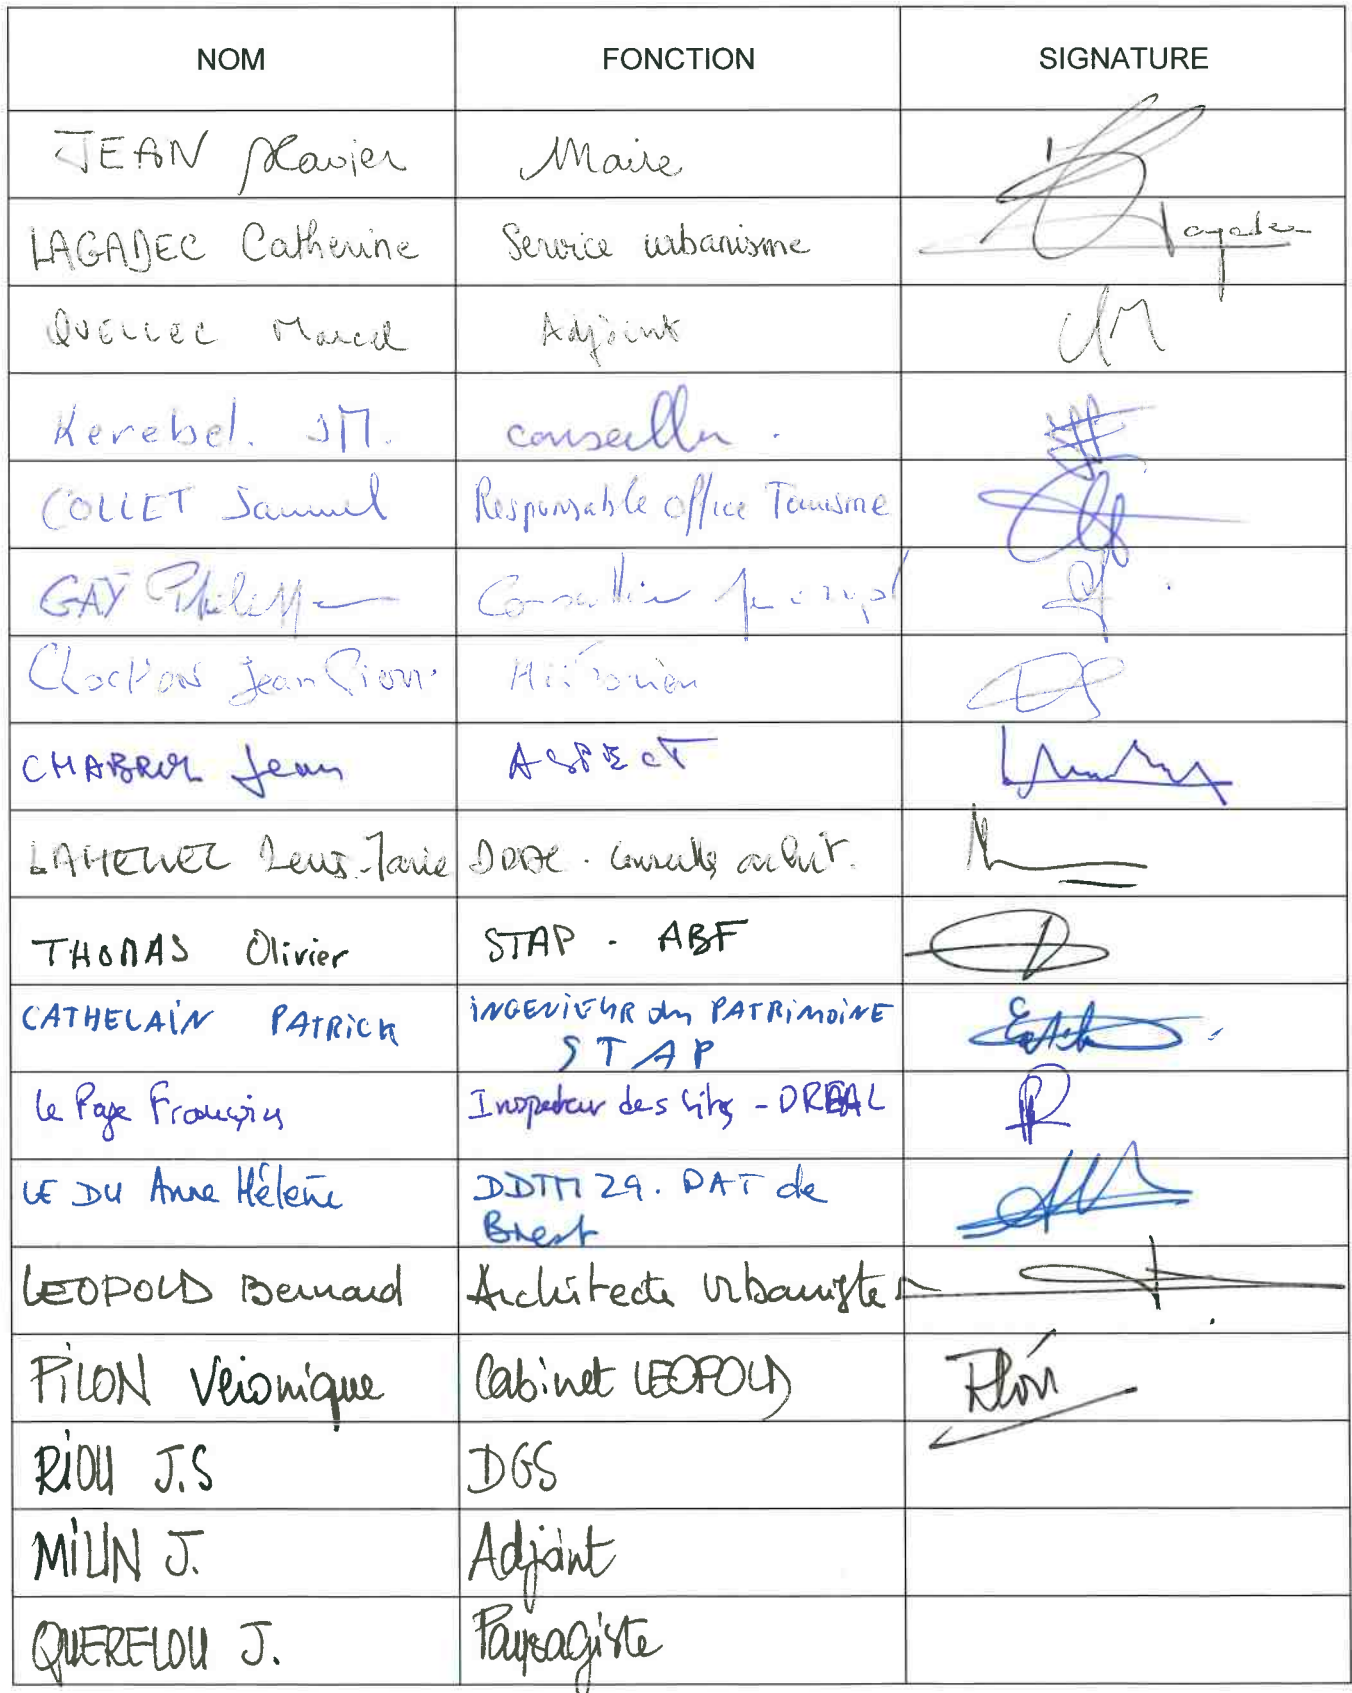 NOM FONCTION SIGNATURE
JEAN Xavier Maire
LAGADEC Catherine Service urbanisme Lagadec
QUELLEC Marcel Adjoint
Kerebel. JM. conseiller.
COLLET Samuel Responsable Office Tourisme
GAY Philippe Conseiller
Jean Pierre Historien
CHABROL Jean ASPECT
Conseiller archit.
THOMAS Olivier STAP - ABF
CATHELAIN PATRICK INGENIEUR du PATRIMOINE
STAP
Le Page François Inspecteur des sites - DREAL
LE DU Anne Hélène DDTM 29. PAT de
Brest
LEOPOLD Bernard Architecte Urbaniste
PILON Véronique Cabinet LEOPOLD Pilon
RIOU J.S DGS
MILIN J. Adjoint
QUERELOU J. Paysagiste